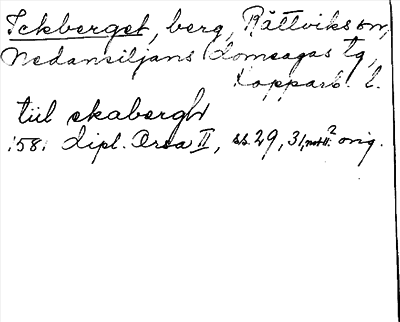 Ickberget, berg, Rättviks sn,
Nedansiljans domsagas tg,
Kopparb. l.
tiil ekabergh
158. dipl. Orsa II, s.s. 29, 31, orig.